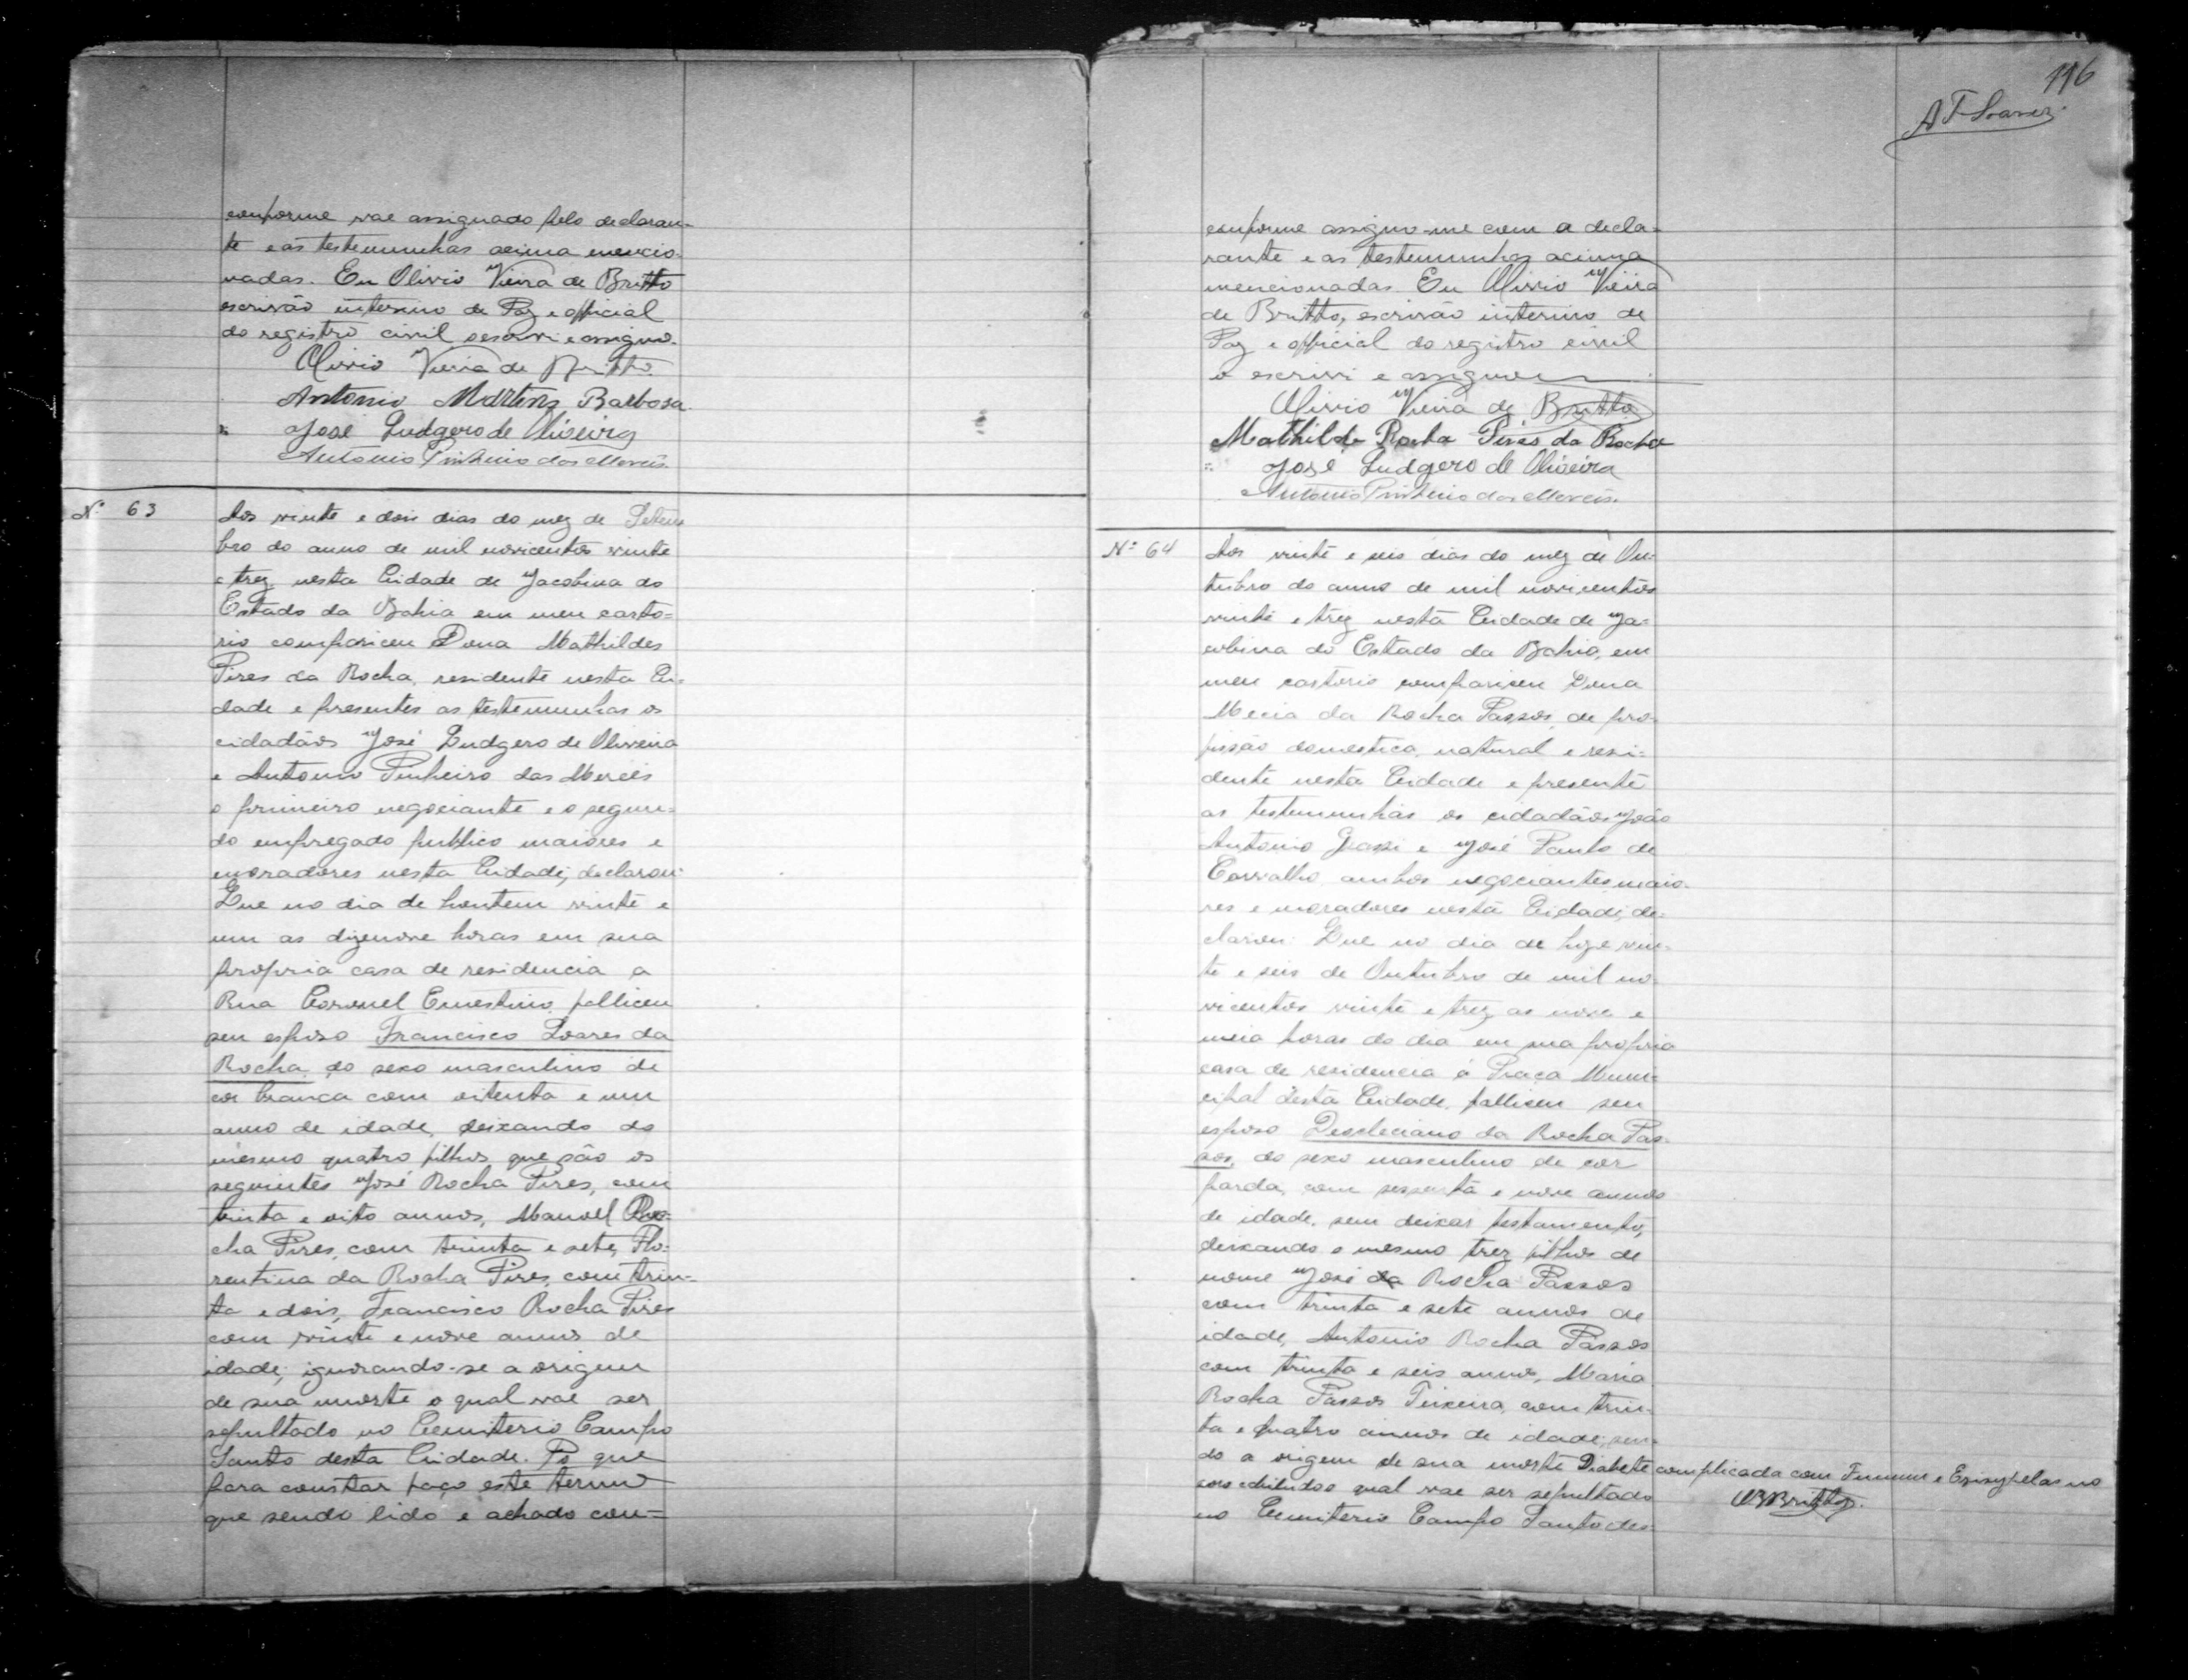 conforme vae assignado pelo declaran-
te e as testemunhas acima mencio-
nadas. Eu Olivio Vieira de Britto
escrivão interino de Paz e official
do registro civil escrevi e assigno.
Olivio Vieira de Britto
Antonio Martins Barbosa
José Ludgero de Oliveira
Antonio Pinheiro das Mercês.
Nº 63
Aos vinte e dois dias do mez de Setem
bro do anno de mil novicentos vinte
e trez nesta Cidade de Jacobina do
Estado da Bahia em meu carto=
rio compariceu Dona Mathildes
Pires da Rocha, residente nesta Ci-
dade e presentes as testemunhas os
cidadãos José Ludgero de Oliveira
e Antonio Pinheiro das Mercês
o primeiro negociante e o segun-
do empregado publico maiores e
moradores nesta Cidade, declarou:
Que no dia de hontem vinte e
um as dizenove horas em sua
propria casa de residencia a
Rua Coronel Ernestino, falliceu
seu esposo Francisco Soares da
Rocha, do sexo masculino de
cor branca com oitenta e um
anno de idade, deixando do
mesmo quatro filhos que são os
seguintes José Rocha Pires, com
trinta e oito annos, Manoel Ro-
cha Pires, com trinta e sete, Flo-
rentina da Rocha Pires, com trin-
ta e dois, Francisco Rocha Pires
com vinte e nove annos de
idade; ignorando-se a origem
de sua morte o qual vae ser
sepultado no Cemiterio Campo
Santo desta Cidade. Do que
para constar faço este termo
que sendo lido e achado con-=
116
A T Soares
conforme assigno-me com a decla=
rante e as testemunhas acima
mencionadas. Eu Olivio Vieira
de Britto, escrivão interino de
Paz e official do registro civil
o escrevi e assigno
Olivio Vieira de Britto
Mathilde Rocha Pires da Rocha
José Ludgero de Oliveira
Antonio Pinheiro das Mercês.
Nº 64
Aos vinte e seis dias do mez de Ou-
tubro do anno de mil novicentos
vinte e trez nesta Cidade de Ja-
cobina do Estado da Bahia, em
meu cartorio compariceu Dona
Mecia da Rocha Passos, de pro-
fissão domestica, natural e resi-
dente nesta Cidade e presente
as testemunhas os cidadãos João
Antonio e José Paulo de
Carvalho, ambos negociantes, maio-
res e moradores nesta Cidade, de-
clarou: Que no dia de hoje vin-
te e seis de Outubro de mil no-
vicentos vinte e trez as nove e
meia horas do dia em sua propria
casa de residencia á Praça Muni-
cipal desta Cidade, falliceu seu
esposo Deocleciano da Rocha Pas-
sos, do sexo masculino de cor
parda, com sessenta e nove annos
de idade, sem deixar testamento,
deixando o mesmo trez filhos de
nome José da Rocha Passos
com trinta e sete annos de
idade, Antonio Rocha Passos
com trinta e seis annos, Maria
Rocha Passos Teixeira, com trin-
ta e quatro annos de idade; sen-
do a origem de sua morte Diabete complicada com e Erisypelas no
o qual vae ser sepultado
no Cemiterio Campo Santo des-
OVBritto.